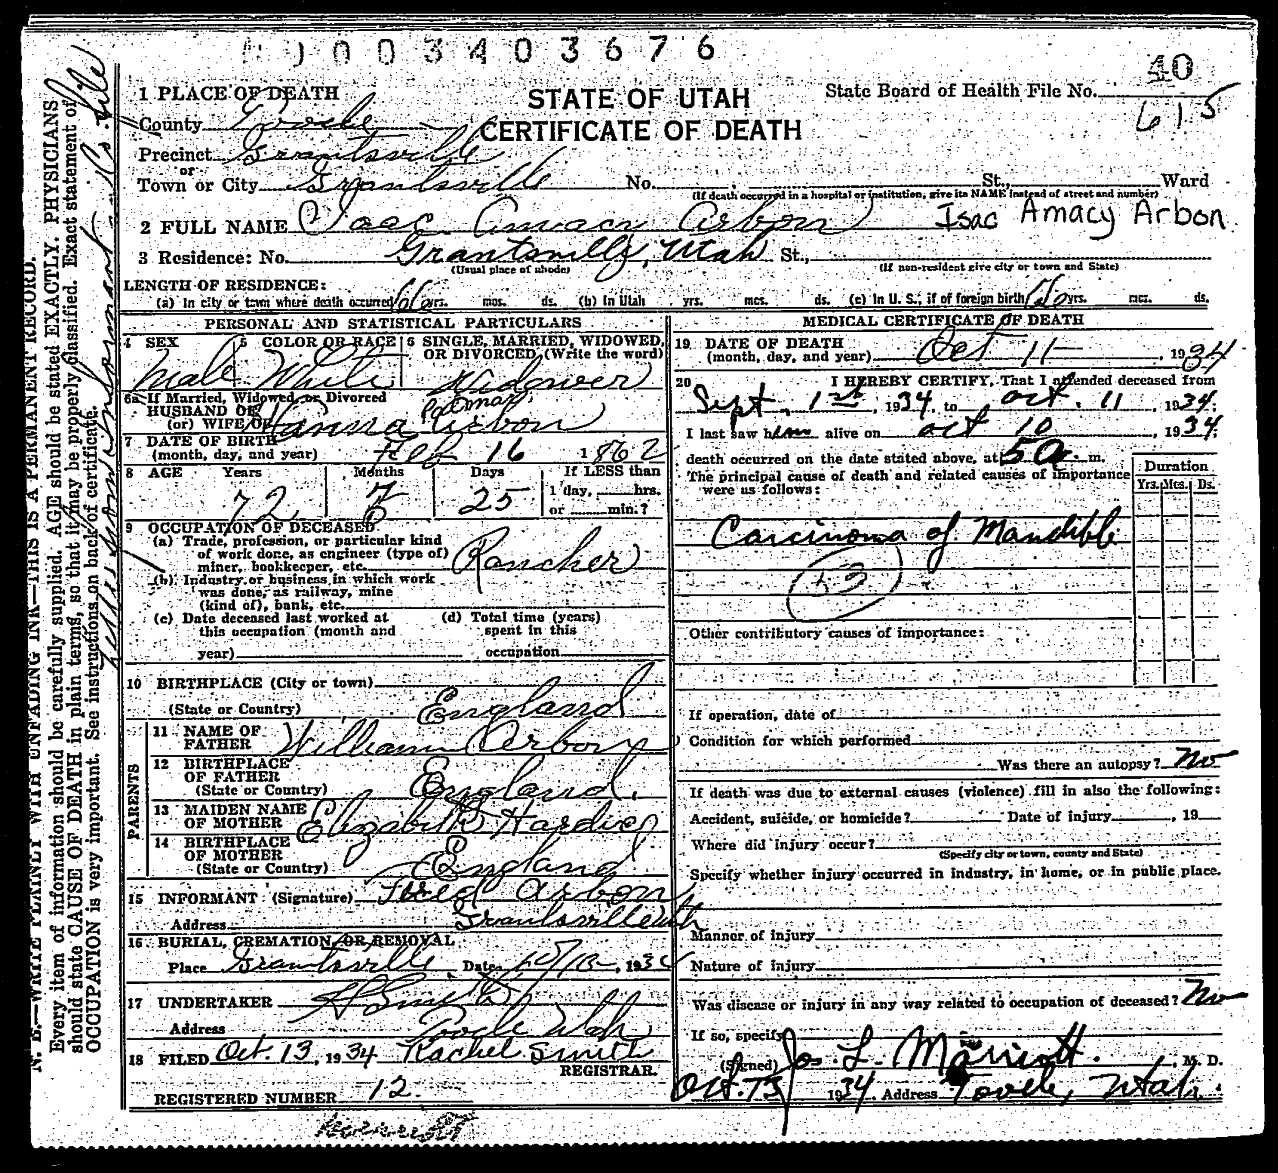 0003403676
40
1 PLACE OF DEATH
STATE OF UTAH
State Board of Health File No.
County Tooele
CERTIFICATE OF DEATH
615
Precinct Grantsville
or
Town or City Grantsville No. St., Ward
(If death occurred in a hospital or institution, give its NAME instead of street and number)
2 FULL NAME Isaac Amacy Arbon Isac Amacy Arbon
3 Residence: No. Grantsville, Utah St.,
(Usual place of abode) (If non-resident give city or town and State)
LENGTH OF RESIDENCE:
(a) In city or town where death occurred 66 yrs. mos. ds. (b) In Utah yrs. mos. ds. (c) In U. S., if of foreign birth yrs. mos. ds.
PERSONAL AND STATISTICAL PARTICULARS
4 SEX 5 COLOR OR RACE 6 SINGLE, MARRIED, WIDOWED,
OR DIVORCED, (Write the word)
Male White Widower
6a If Married, Widowed, or Divorced
HUSBAND OF
(or) WIFE OF Hanna Arbon
7 DATE OF BIRTH
(month, day, and year) Feb 16 1862
8 AGE Years Months Days If LESS than
1 day, hrs.
72 7 25 or min.?
9 OCCUPATION OF DECEASED
(a) Trade, profession, or particular kind
of work done, as engineer (type of)
miner, bookkeeper, etc. Rancher
(b) Industry or business in which work
was done, as railway, mine
(kind of), bank, etc.
(c) Date deceased last worked at (d) Total time (years)
this occupation (month and spent in this
year) occupation
10 BIRTHPLACE (City or town)
(State or Country) England
PARENTS
11 NAME OF
FATHER William Arbon
12 BIRTHPLACE
OF FATHER
(State or Country) England
13 MAIDEN NAME
OF MOTHER Elizabeth Hardies
14 BIRTHPLACE
OF MOTHER
(State or Country) England
15 INFORMANT (Signature) Fred Arbon
Address Grantsville Utah
16 BURIAL, CREMATION, OR REMOVAL
Place Grantsville, Date 10/13, 1934
17 UNDERTAKER Smith
Address Tooele Utah
18 FILED Oct. 13, 1934 Rachel Smith
REGISTRAR.
REGISTERED NUMBER 12.
MEDICAL CERTIFICATE OF DEATH
19 DATE OF DEATH
(month, day, and year) Oct 11, 1934
20 I HEREBY CERTIFY, That I attended deceased from
Sept. 1st, 1934, to Oct. 11, 1934:
I last saw him alive on Oct 10, 1934:
death occurred on the date stated above, at 5 a m.
The principal cause of death and related causes of importance
were as follows:
Duration
Yrs. Mts. Ds.
Carcinoma of Mandible
53
Other contributory causes of importance:
If operation, date of
Condition for which performed
Was there an autopsy? No
If death was due to external causes (violence) fill in also the following:
Accident, suicide, or homicide? Date of injury, 19
Where did injury occur?
(Specify city or town, county and State)
Specify whether injury occurred in industry, in home, or in public place.
Manner of injury
Nature of injury
Was disease or injury in any way related to occupation of deceased? No
If so, specify
(Signed) Jos. L. Marriott, M. D.
Oct. 13 1934. Address Tooele, Utah.
N. B.—WRITE PLAINLY WITH UNFADING INK—THIS IS A PERMANENT RECORD.
Every item of information should be carefully supplied. AGE should be stated EXACTLY. PHYSICIANS
should state CAUSE OF DEATH in plain terms, so that it may be properly classified. Exact statement of
OCCUPATION is very important. See instructions on back of certificate.